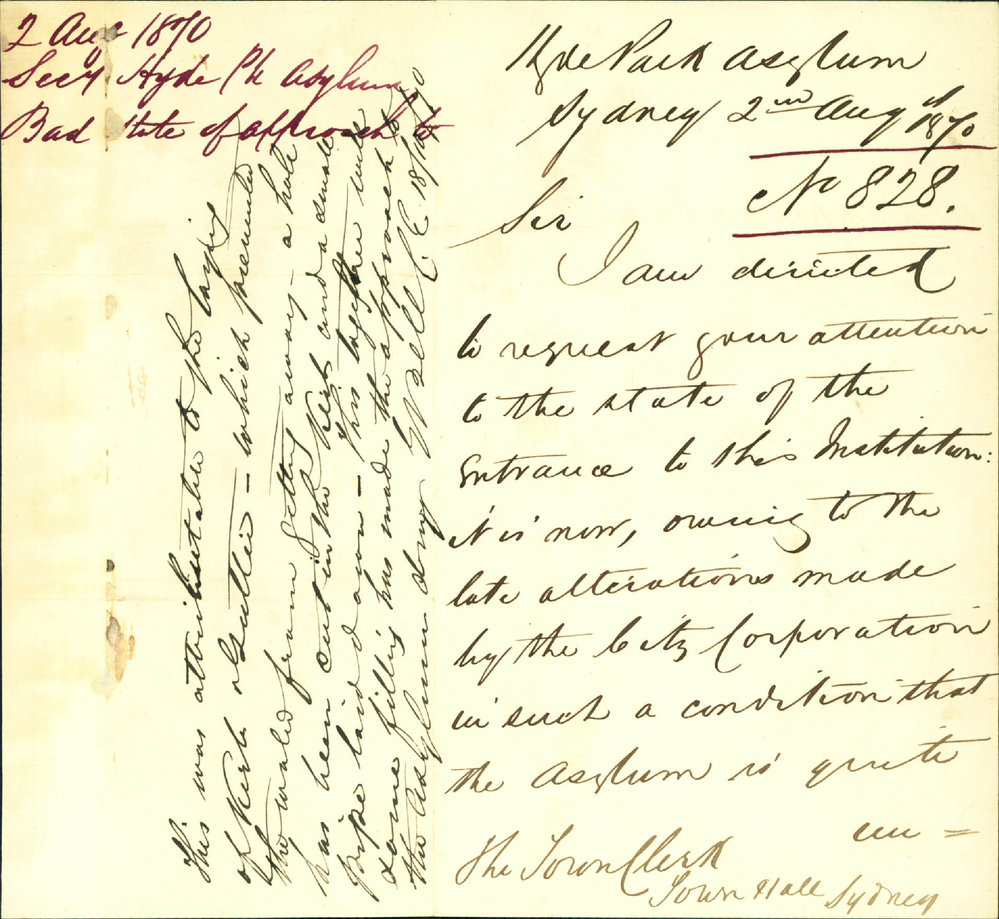 2 Aug 1870
Secy Hyde Pk Asylum
Bad state of approach to
This was attributable to the laying
of Kerb & Gutter - which prevented
the water from getting away - a hole
has been cut in the Kerb and a small
pipe laid down - this together with
some filling has made the approach to
the Asylum dry
CE 18/8/70
Hyde Park Asylum
Sydney 2nd Augt 1870
No 828.
Sir
I am directed
to request your attention
to the state of the
Entrance to this Institution:
it is now, owing to the
late alterations made
by the City Corporation
in such a condition that
the Asylum is quite
un =
The Town Clerk
Town Hall Sydney